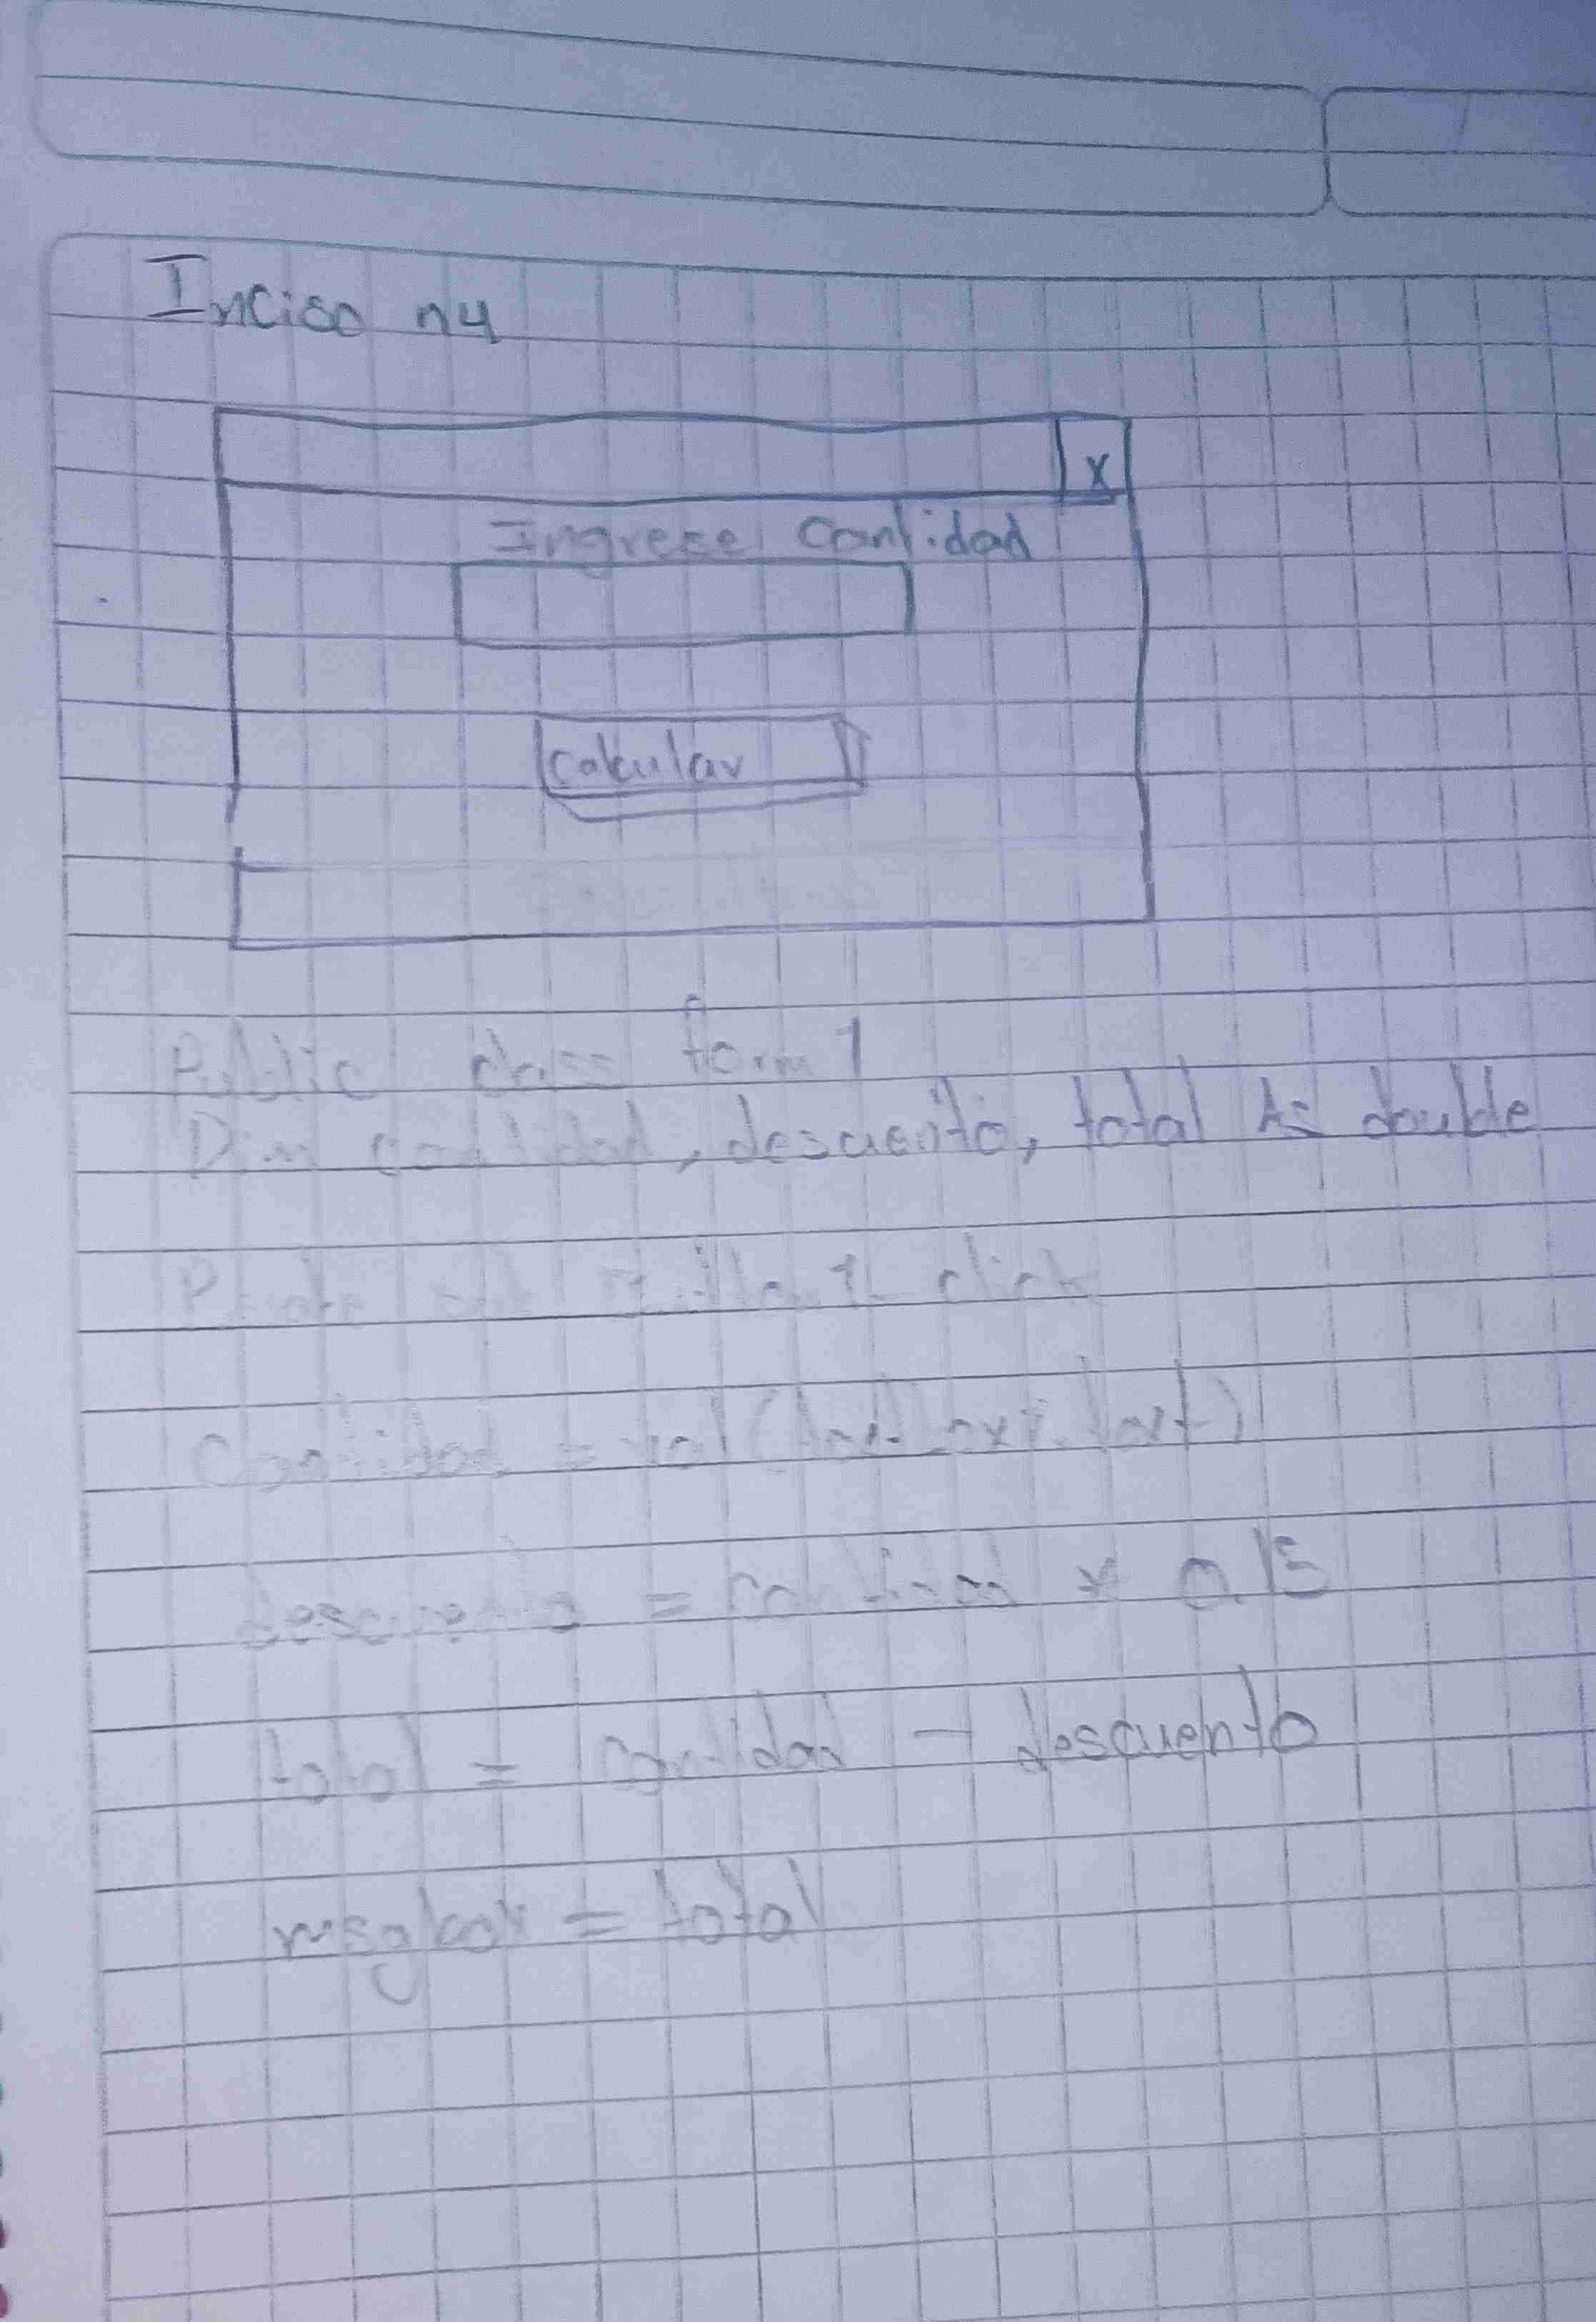 Inciso n4
X
Ingrese Cantidad
Calcular
Public class form 1
Dim cantidad, descuento, total As double
Private sub click
Cantidad = val(
descuento = cantidad * 0.15
total = cantidad - descuento
msgbox = total